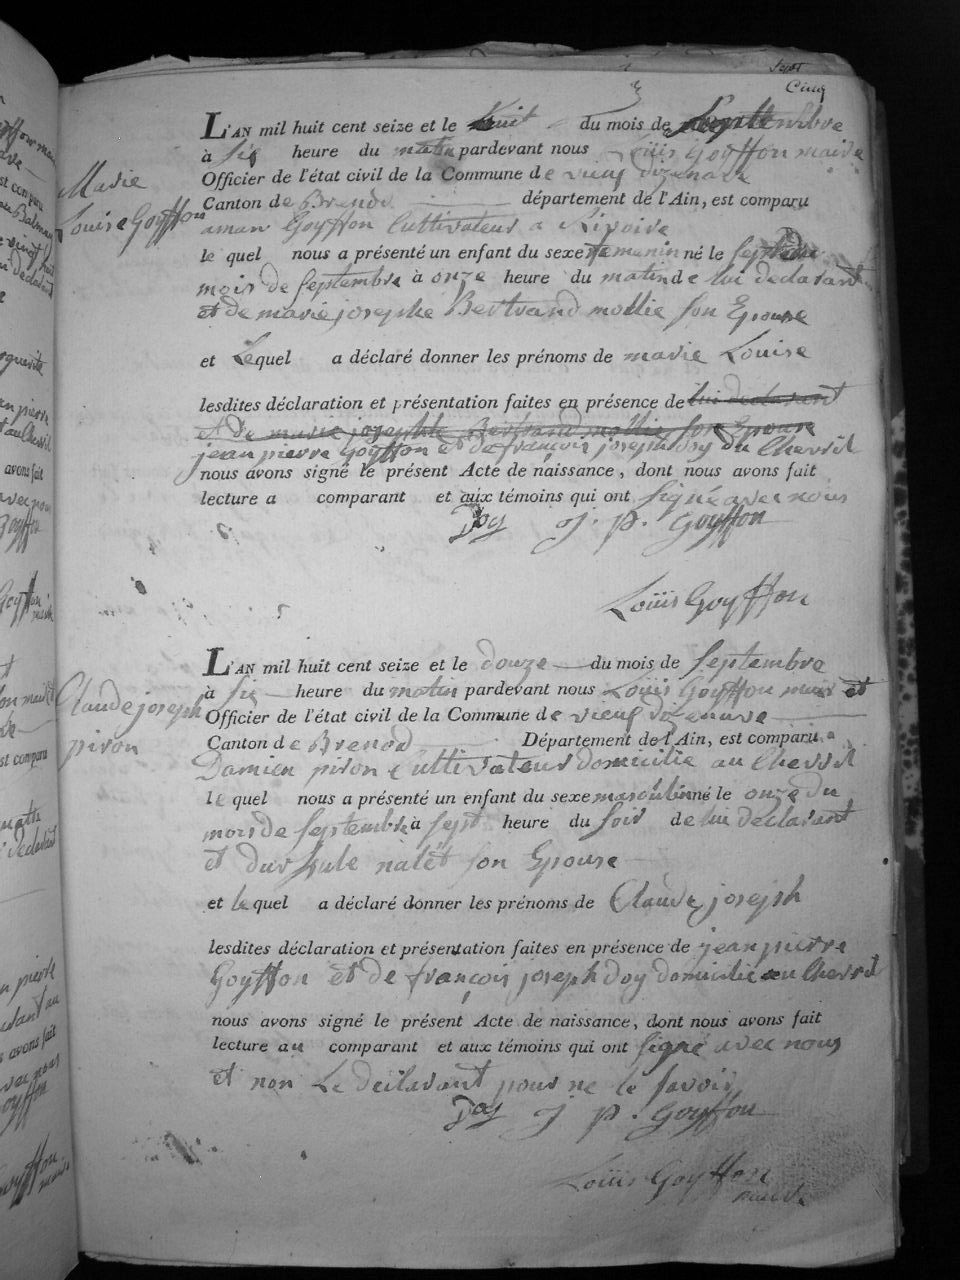 Sept
Cinq
L'AN mil huit cent seize et le huit du mois de Septembre
à Six heure du matin pardevant nous Loüis Goyffon maire
Officier de l'état civil de la Commune de vieuf dizenave
Canton de Brenod département de l'Ain, est comparu
Marie
Louise Goyffon
aman Goyffon Cultivateur a Rivoire
le quel nous a présenté un enfant du sexe femenin né le Sept du
mois de Septembre à onze heure du matin de lui declarant
et de marie josephe Bertrand mollie son Epouse
et Lequel a déclaré donner les prénoms de marie Louise
lesdites déclaration et présentation faites en présence de lui declarant
et de marie josephte Bertrand mollie son Epouse
jean pierre Goyffon et de françois joseph doy du Chevril
nous avons signé le présent Acte de naissance, dont nous avons fait
lecture a comparant et aux témoins qui ont signé avec nous
Doy J. p. Goyffon
Loüis Goyffon
L'AN mil huit cent seize et le douze du mois de Septembre
à Six heure du matin pardevant nous Loüis Goyffon maire et
Officier de l'état civil de la Commune de vieuf dizenave
Claude joseph
piron
Canton de Brenod Département de l'Ain, est comparu
Damien piron Cultivateur domicilie au Chevril
le quel nous a présenté un enfant du sexe masculin né le onze du
mois de Septembre à sept heure du soir de lui declarant
et dursule nalet son Epouse
et le quel a déclaré donner les prénoms de Claude joseph
lesdites déclaration et présentation faites en présence de jean pierre
Goyffon et de françois joseph doy domicilie au Chevril
nous avons signé le présent Acte de naissance, dont nous avons fait
lecture au comparant et aux témoins qui ont signé avec nous
et non Le declarant pour ne le savoir
Doy J. p. Goyffon
Loüis Goyffon
maire